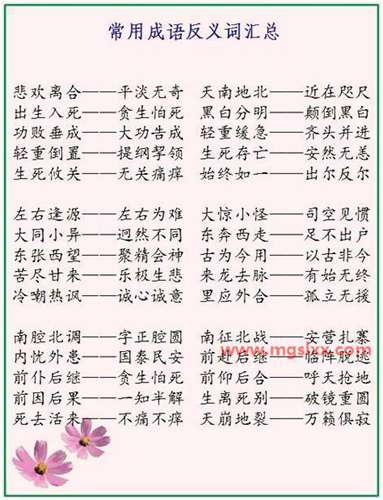 常用成语反义词汇总
悲欢离合——平淡无奇 天南地北——近在咫尺
出生入死——贪生怕死 黑白分明——颠倒黑白
功败垂成——大功告成 轻重缓急——齐头并进
轻重倒置——提纲挈领 生死存亡——安然无恙
生死攸关——无关痛痒 始终如一——出尔反尔
左右逢源——左右为难 大惊小怪——司空见惯
大同小异——迥然不同 东奔西走——足不出户
东张西望——聚精会神 古为今用——以古非今
苦尽甘来——乐极生悲 来龙去脉——有始无终
冷嘲热讽——诚心诚意 里应外合——孤立无援
南腔北调——字正腔圆 南征北战——安营扎寨
内忧外患——国泰民安 前赴后继——临阵脱逃
www.mgslxx.com
前仆后继——贪生怕死 前仰后合——呼天抢地
前因后果——一知半解 生离死别——破镜重圆
死去活来——不痛不痒 天崩地裂——万籁俱寂